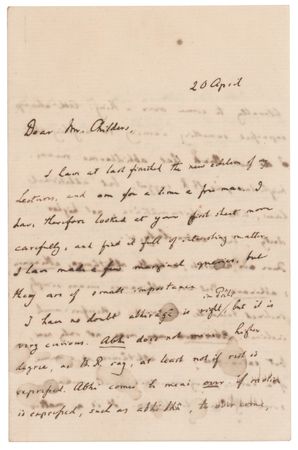 20 April
Dear Mr. Childers,
I have at last finished the new edition of my
Lectures, and am for a time a free man. I
have therefore looked at your first sheet more
carefully, and find it full of interesting matter.
I have made a few marginal queries, but
they are of small importance.
in Pali
I have no doubt is right, but it is
very curious. Abhi does not mean, higher
degree, as B.R. say, at least not if rest is
expressed. Abhi comes to mean over, if motion
is expressed, such as abhi bhû, to overcome,